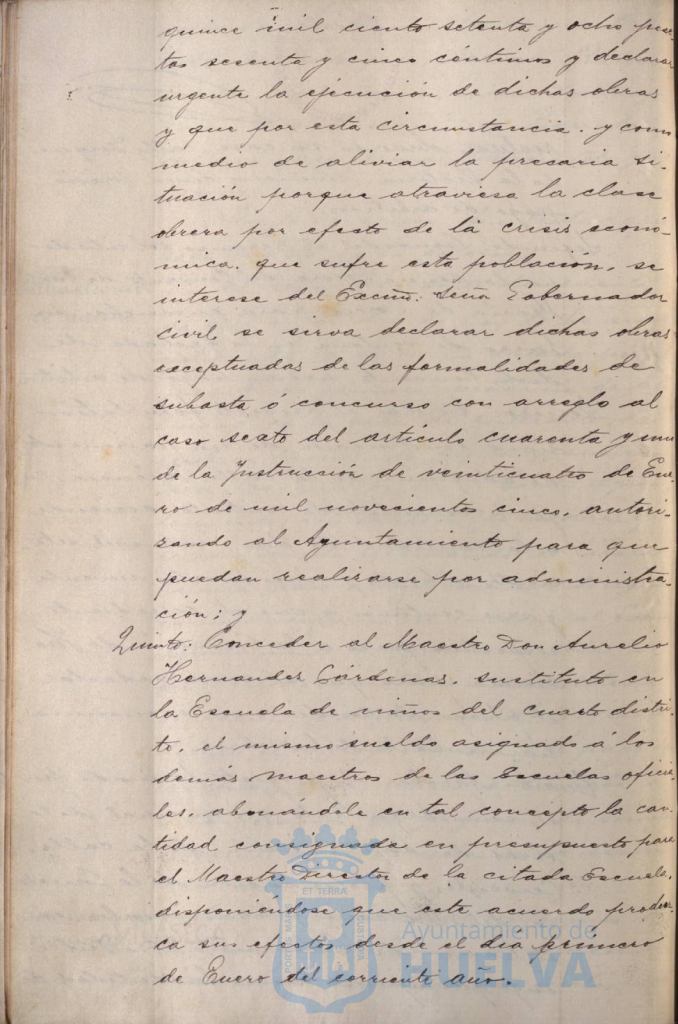 quince mil ciento setenta y ocho pese-
tas sesenta y cinco céntimos y declarar
urgente la ejecución de dichas obras
y que por esta circunstancia. y como
medio de aliviar la precaria si-
tuación porque atraviesa la clase
obrera por efecto de la crisis econó-
mica. que sufre esta población, se
interese del Excmo. Señor Gobernador
civil se sirva declarar dichas obras
exceptuadas de las formalidades de
subasta ó concurso con arreglo al
caso sexto del artículo cuarenta y uno
de la Instrucción de veinticuatro de Ene-
ro de mil novecientos cinco, autori-
zando al Ayuntamiento para que
puedan realizarse por administra-
ción; y
Quinto: Conceder al Maestro Don Aurelio
Hernandez Cárdenas. sustituto en
la Escuela de niños del cuarto distri-
to, el mismo sueldo asignado á los
demás maestros de las Escuelas oficia-
les, abonándole en tal concepto la can-
tidad consignada en presupuesto para
el Maestro Director de la citada Escuela,
disponiéndose que este acuerdo produz-
ca sus efectos desde el dia primero
de Enero del corriente año.
Ayuntamiento de
HUELVA